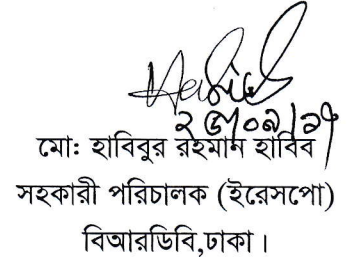 মো: হাবিবুর রহমান হাবিব
সহকারী পরিচালক (ইরেসপো)
বিআরডিবি,ঢাকা।